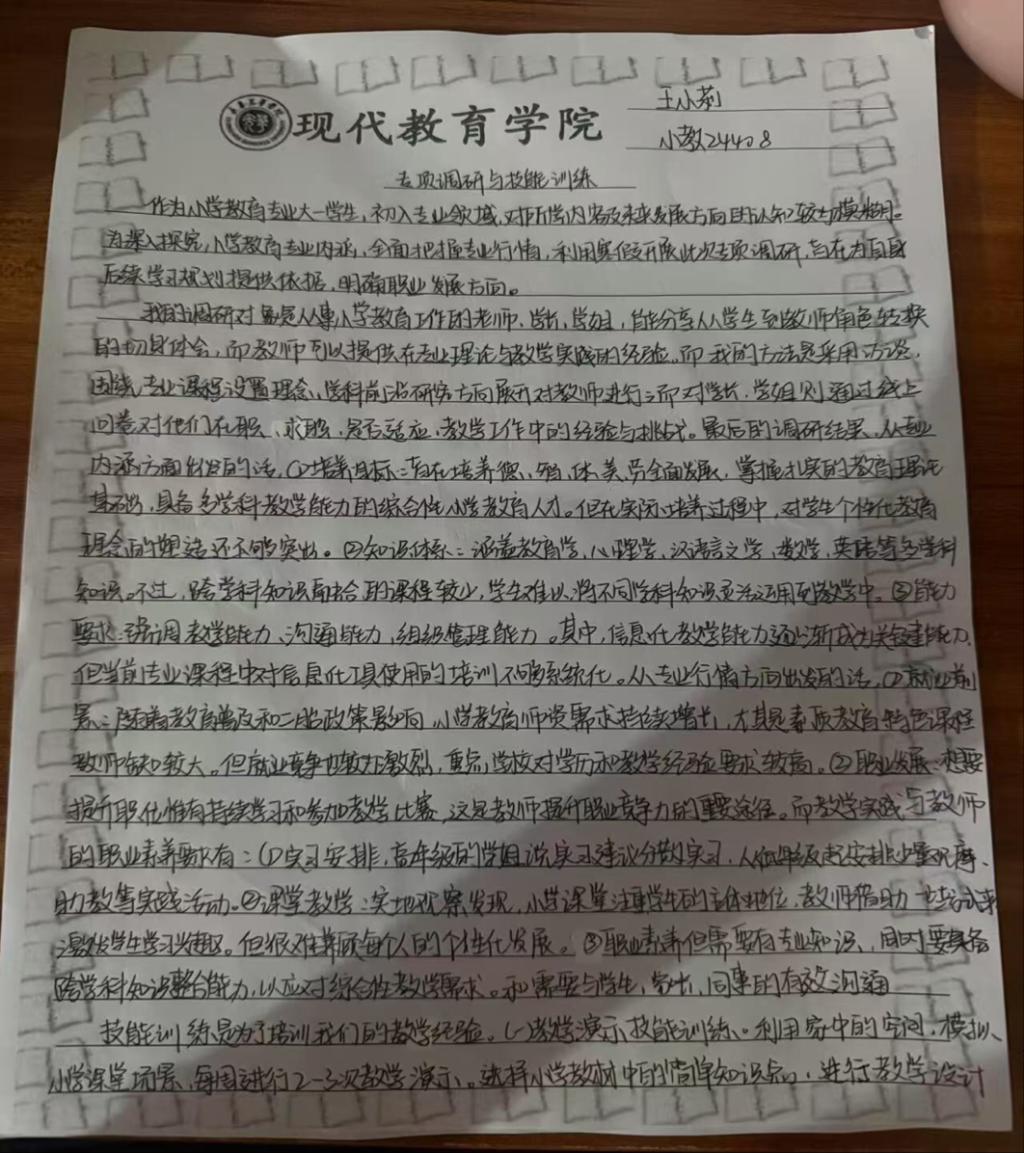 现代教育学院
王小莉
小教24408
专项调研与技能训练
作为小学教育专业大一学生，初入专业领域，对所学内容及未来发展方向的认知较为模糊。
为深入探究小学教育专业内涵，全面把握专业行情，利用寒假开展此次专项调研，旨在为自身
后续学习规划提供依据，明确职业发展方向。
我的调研对象是从事小学教育工作的老师、学长、学姐，能分享从学生到教师角色转换
的切身体会，而教师可以提供在专业理论与教学实践的经验。而我的方法是采用访谈，
围绕专业课程设置理念、学科前沿研究方向展开对教师进行；而对学长、学姐则通过线上
问卷对他们在职、求职、是否适应、教学工作中的经验与挑战。最后的调研结果，从专业
内涵方面出发的话，①培养目标：旨在培养德、智、体、美、劳全面发展，掌握扎实的教育理论
基础，具备多学科教学能力的综合性小学教育人才。但在实际培养过程中，对学生个性化教育
理念的塑造还不够突出。②知识体系：涵盖教育学，心理学，汉语言文学，数学，英语等多学科
知识。不过，跨学科知识融合的课程较少，学生难以将不同学科知识灵活运用到教学中。③能力
要求：强调教学能力、沟通能力，组织管理能力。其中，信息化教学能力逐渐成为关键能力，
但当前专业课程中对信息化工具使用的培训不够系统化。从专业行情方面出发的话，①就业前
景：随着教育普及和二胎政策影响，小学教育师资需求持续增长，尤其是素质教育特色课程
教师缺口较大。但就业竞争也较为激烈，重点小学校对学历和教学经验要求较高。②职业发展：想要
提升职位惟有持续学习和参加教学比赛，这是教师提升职业竞争力的重要途径。而教学实践与教师
的职业素养要求有：①实习安排，高年级的学姐说实习建议分散实习，从低年级起安排少量观摩、
助教等实践活动。②课堂教学：实地观察发现，小学课堂注重学生的主体地位，教师借助 方式来
激发学生学习兴趣。但很难兼顾每个人的个性化发展。③职业素养但需要有专业知识，同时要具备
跨学科知识整合能力，以应对综合性教学需求。和需要与学生，家长，同事的有效沟通
技能训练是为了培训我们的教学经验。(一)教学演示技能训练、利用家中的空间，模拟
小学课堂场景，每周进行2-3次教学演示。选择小学教材中的简单知识点，进行教学设计